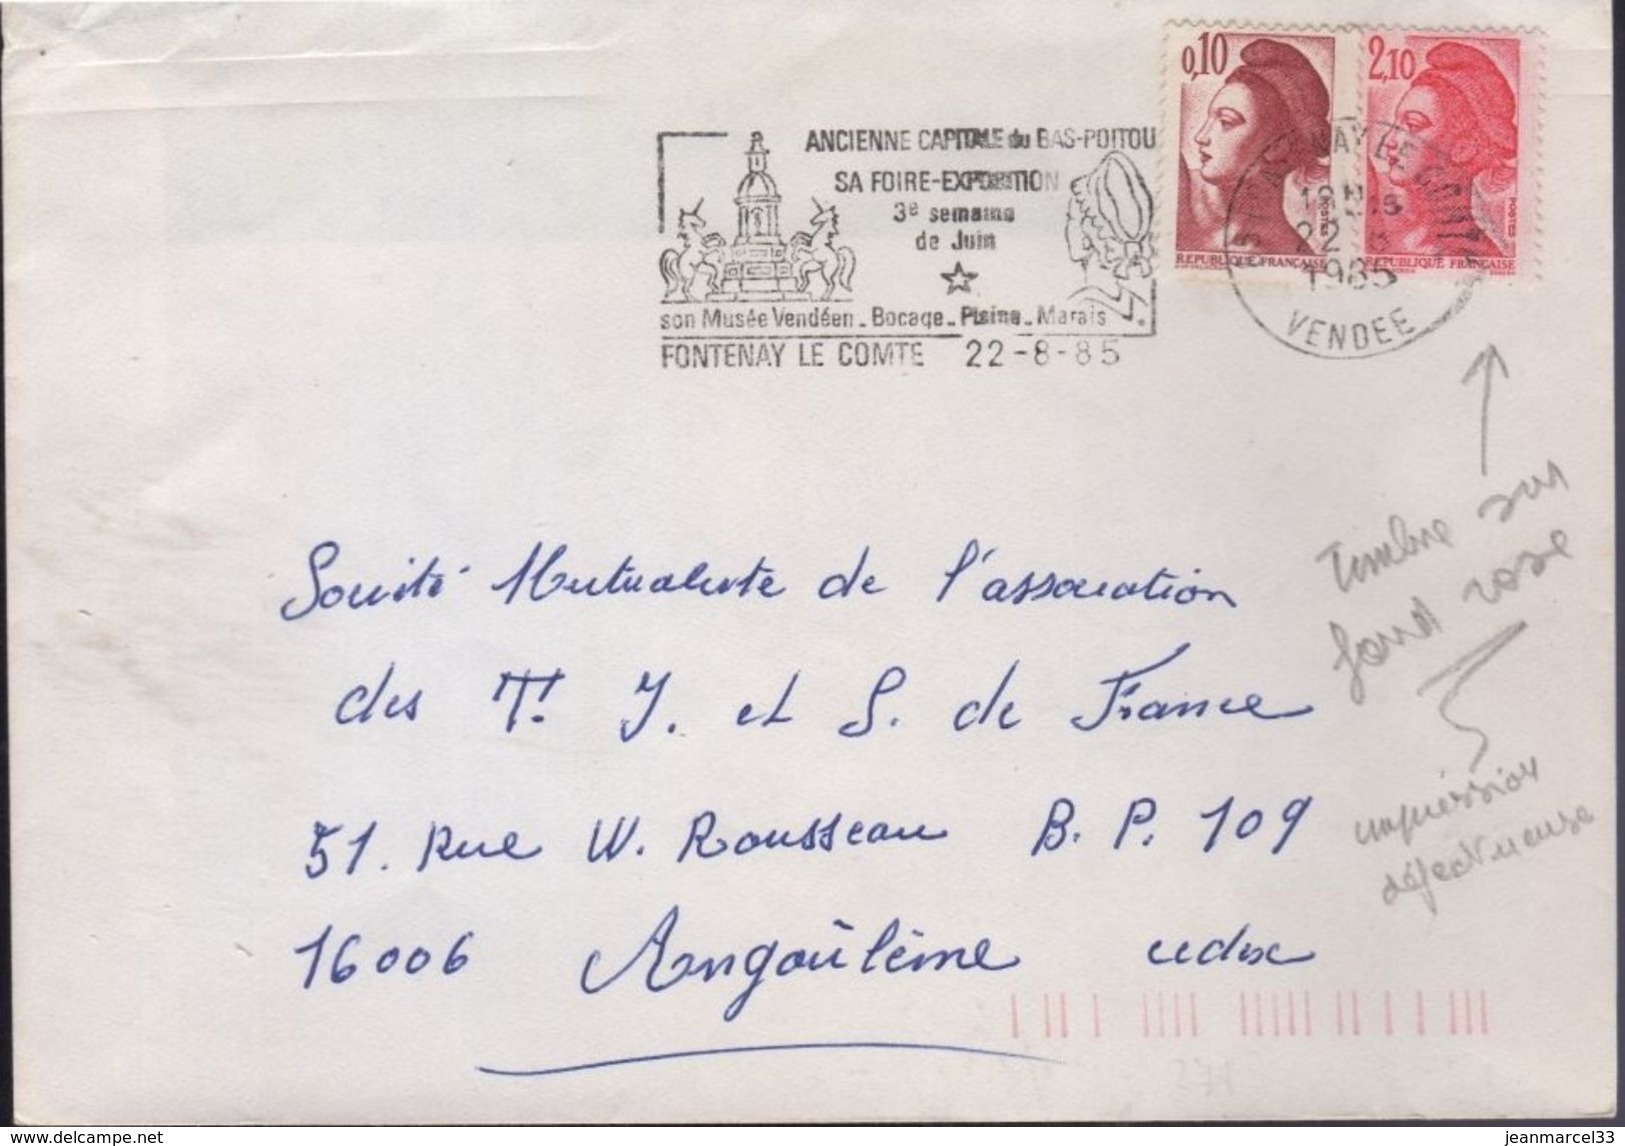 0,10
2,10
POSTES
POSTES
REPUBLIQUE FRANÇAISE
REPUBLIQUE FRANÇAISE
ANCIENNE CAPITALE du BAS-POITOU
SA FOIRE-EXPOSITION
3e semaine
de Juin
son Musée Vendéen - Bocage - Plaine - Marais
FONTENAY LE COMTE 22-8-85
NAY LE
22
1985
VENDEE
Timbre sur
fond rose
impression
défectueuse
Société Mutualiste de l'association
des T. J. et S. de France
51. Rue W. Rousseau B. P. 109
16006 Angoûlème cedex
delcampe.net
jeanmarcel33